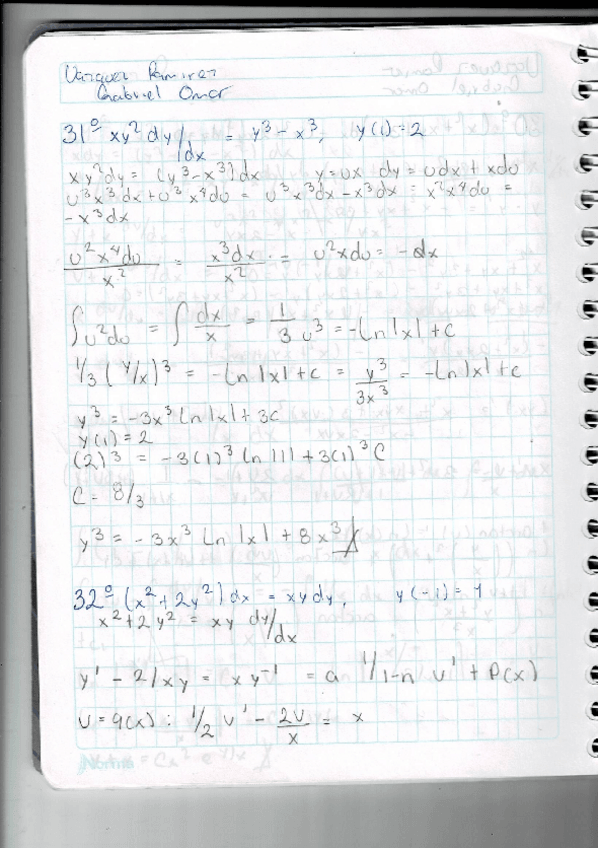 Vazquez Ramirez
Gabriel Omar
31º xy² dy/dx = y³ - x³, y(1) = 2
xy²dy = (y³-x³)dx y=ux dy = udx + xdu
u³x³dx + u³x⁴du = u³x³dx - x³dx = x²x⁴du =
-x³dx
u²x⁴du/x² = x³dx/x² = u²xdu = -dx
∫u²du = ∫dx/x = 1/3 u³ = -Ln|x| + c
1/3 (y/x)³ = -Ln|x| + c = y³/3x³ = -Ln|x| + c
y³ = -3x³ Ln|x| + 3c
y(1) = 2
(2)³ = -3(1)³ Ln|1| + 3(1)³ C
C = 8/3
y³ = -3x³ Ln|x| + 8x³
32º (x² + 2y²) dx = xy dy, y(-1) = 1
x² + 2y² = xy dy/dx
y' - 2/xy = xy⁻¹ = a 1/1-n u' + P(x)
u = q(x) : 1/2 u' - 2u/x = x
Norma